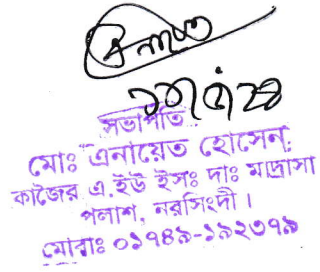 সভাপতি
মোঃ এনায়েত হোসেন
কাজৈর এ.ইউ ইসঃ দাঃ মাদ্রাসা
পলাশ, নরসিংদী।
মোবাঃ ০১৭৪৯-১৯২৩৭৯